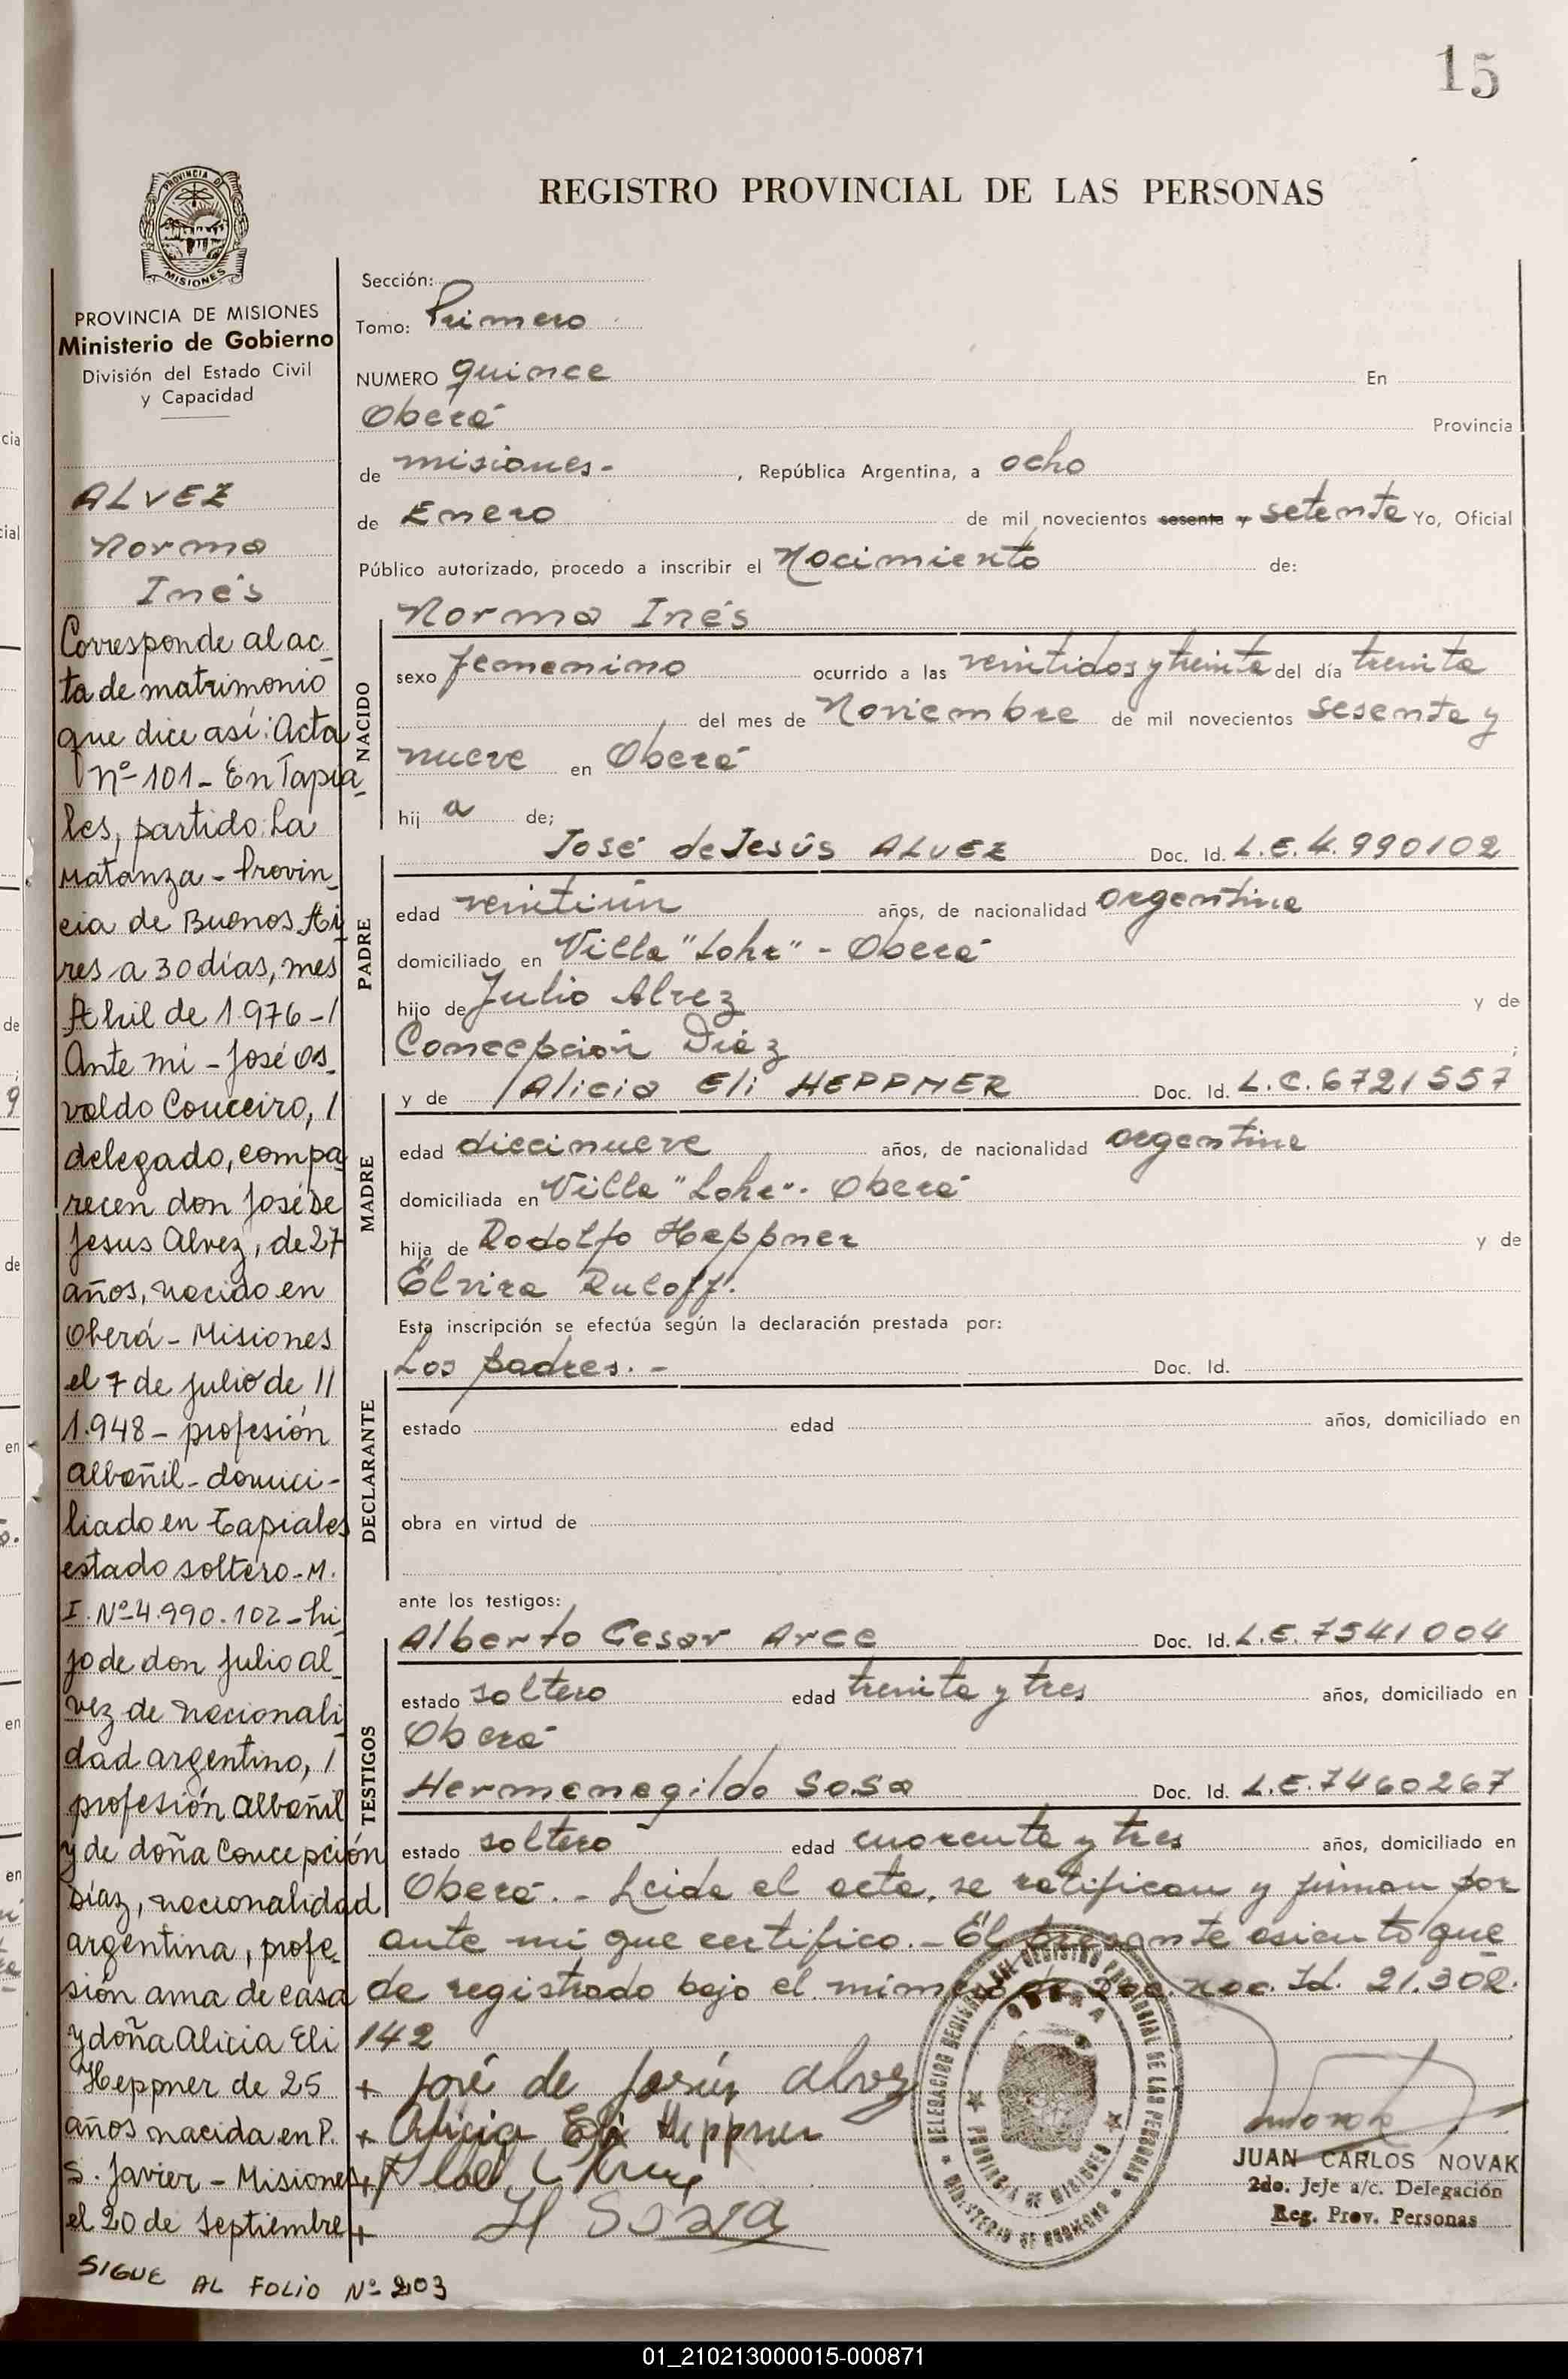 15
REGISTRO PROVINCIAL DE LAS PERSONAS
PROVINCIA DE MISIONES
PROVINCIA DE MISIONES
Ministerio de Gobierno
División del Estado Civil
y Capacidad
ALVEZ
Norma
Inés
Corresponde al ac_
ta de matrimonio
que dice así: Acta
Nº 101 - En Tapia_
les, partido: La
Matanza - Provin_
cia de Buenos Ai_
res a 30 días, mes
Abril de 1.976 -/
Ante mi - José Os_
valdo Couceiro, /
delegado, compa_
recen don José De
Jesus Alvez, de 27
años, nacido en
Oberá - Misiones
el 7 de julio de //
1.948 - profesión
albañil - domici-
liado en Tapiales
estado soltero - M.
I. Nº 4.990.102 - hi_
jo de don Julio Al_
vez de nacionali_
dad argentino, /
profesión albañil
y de doña Concepción
Díaz, nacionalidad
argentina, profe_
sión ama de casa
y doña Alicia Eli
Heppner de 25
años nacida en P.
S. Javier - Misiones
el 20 de Septiembre
SIGUE AL FOLIO Nº 203
Sección:
Tomo: Primero
NUMERO quince En
Oberá Provincia
de misiones - , República Argentina, a ocho
de Enero de mil novecientos sesenta y setenta Yo, Oficial
Público autorizado, procedo a inscribir el Nacimiento de:
NACIDO
Norma Inés
sexo femenino ocurrido a las veintidos y treinta del día treinta
del mes de Noviembre de mil novecientos sesenta y
nueve en Oberá
hij a de;
PADRE
José de Jesús ALVEZ Doc. Id. L.E.4.990102
edad veintiún años, de nacionalidad argentina
domiciliado en Villa "Lohr" - Oberá
hijo de Julio Alvez y de
Concepción Diaz ;
MADRE
y de Alicia Eli HEPPNER Doc. Id. L.C.6721557
edad diecinueve años, de nacionalidad argentina
domiciliada en Villa "Lohr". Oberá
hija de Rodolfo Heppner y de
Elvira Ruloff.
Esta inscripción se efectúa según la declaración prestada por:
DECLARANTE
Los padres. - Doc. Id.
estado edad años, domiciliado en
obra en virtud de
ante los testigos:
TESTIGOS
Alberto Cesar Arce Doc. Id. L.E.7541004
estado soltero edad treinta y tres años, domiciliado en
Oberá
Hermenegildo Sosa Doc. Id. L.E.7460267
estado soltero edad cuarenta y tres años, domiciliado en
Oberá. - Leida el acta, se ratifican y firman por
ante mi que certifico. - El presente asiento que
de registrado bajo el número de Doc. nac. Id. 21.302.
142
+ José de Jesús Alvez
+ Alicia Eli Heppner
+
+ H Sosa
DELEGACION REGISTRO PROVINCIAL DE LAS PERSONAS
OBERA
PROVINCIA DE MISIONES
MINISTERIO DE GOBIERNO
JUAN CARLOS NOVAK
2do. Jefe a/c. Delegación
Reg. Prov. Personas
01_210213000015-000871